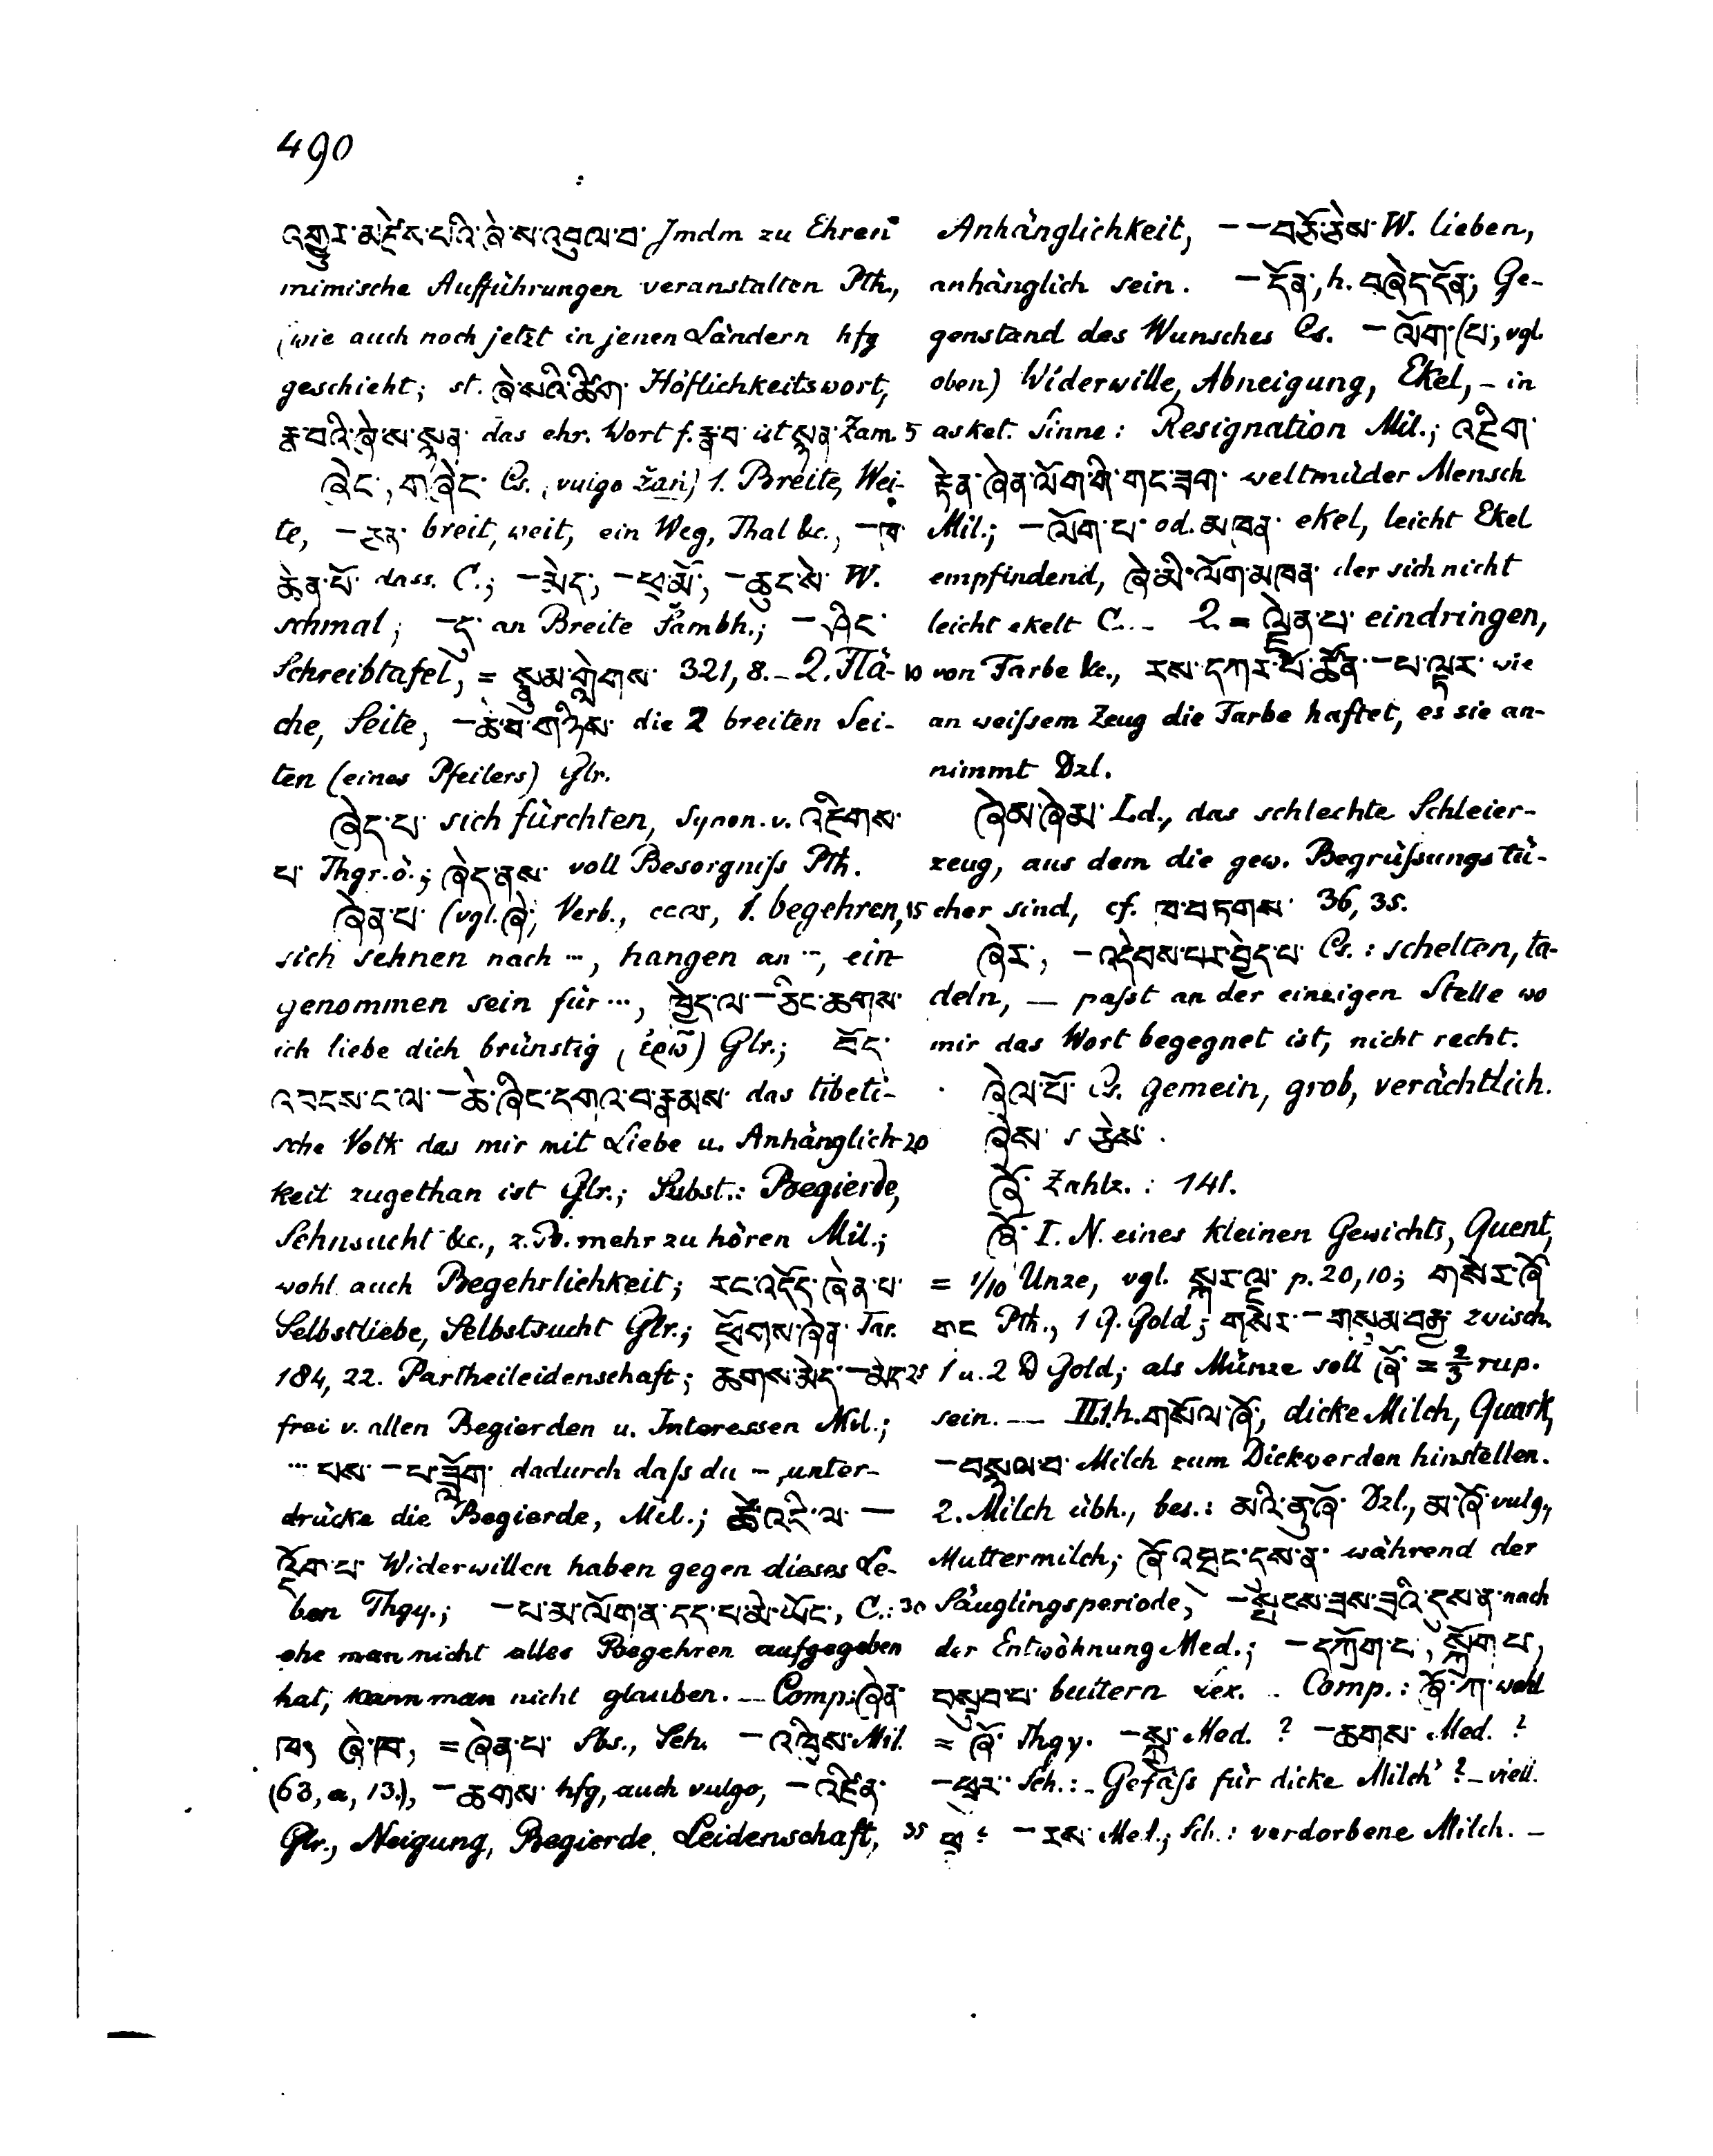 490
འགྱུར་མཛེས་པའི་ཞེ་ས་འབུལ་བ་ Jmdm zu Ehren
mimische Aufführungen veranstalten Pth.,
(wie auch noch jetzt in jenen Ländern hfg
geschieht; st. ཞེ་སའི་ཚིག་ Höflichkeitswort,
རྣ་བའི་ཞེ་ས་སྙན་ das ehr. Wort f. རྣ་བ་ ist སྙན་ Zam.
ཞེང་, གཞེང་ Cs., vulgo žaṅ) 1. Breite, Wei-
te, – ཅན་ breit, weit, ein Weg, Thal &c., – ཁ་
ཆེན་པོ་ dass. C.; – མེད་, – ཕྲ་མོ་, – ཆུང་སེ་ W.
schmal; – དུ་ an Breite Šambh.; – ཤིང་
Schreibtafel, = སྣུམ་གླེགས་ 321, 8. – 2. Flä-
che, Seite, – ཆེ་བ་གཉིས་ die 2 breiten Sei-
ten (eines Pfeilers) Glr.
ཞེད་པ་ sich fürchten, Synon. v. འཇིགས་
པ་ Thgr. ò.; ཞེད་ནས་ voll Besorgniſs Pth.
ཞེན་པ་ (vgl. ཞེ་, Verb., 1. begehren,
sich sehnen nach ···, hangen an ···, ein-
genommen sein für ···, ཁྱེད་ལ་ – ཅིང་ཆགས་
ich liebe dich brünstig (ἐρῶ) Glr.; བོད་
འབངས་ང་ལ་ – ཆེ་ཞིང་དགའ་བ་རྣམས་ das tibeti-
sche Volk das mir mit Liebe u. Anhänglich-
keit zugethan ist Glr.; Subst.: Begierde,
Sehnsucht &c., z. B. mehr zu hören Mil.;
wohl auch Begehrlichkeit; རང་འདོད་ཞེན་པ་
Selbstliebe, Selbstsucht Glr.; ཕྱོགས་ཞེན་ Tar.
184, 22. Partheileidenschaft; ཆགས་མེད་ – མེད་
frei v. allen Begierden u. Interessen Mil.;
··· པས་ – པ་ཟློག་ dadurch daſs du –, unter-
drücke die Begierde, Mil.; ཚེ་འདི་ལ་ –
ལོག་པ་ Widerwillen haben gegen dieses Le-
ben Thgy.; – པ་མ་ལོག་ན་དད་པ་མི་ཡོང་, C.:
ehe man nicht alles Begehren aufgegeben
hat, kann man nicht glauben. – Comp.: ཞེན་
ཁ, ཞེ་ཁ་, = ཞེན་པ་ Sbs., Sch. – འཁྲིས་ Mil.
(63, a, 13.), – ཆགས་ hfg, auch vulgo, – འཛིན་
Glr., Neigung, Begierde, Leidenschaft,
Anhänglichkeit, – – བཅོ་ཅེས་ W. lieben,
anhänglich sein. – དོན་, h. བཞེད་དོན་, Ge-
genstand des Wunsches Cs. – ལོག་ (པ་, vgl.
oben) Widerwille, Abneigung, Ekel, – in
5 asket. Sinne: Resignation Mil.; འཇིག་
རྟེན་ཞེན་ལོག་གི་གང་ཟག་ weltmüder Mensch
Mil.; – ལོག་པ་ od. མཁན་ ekel, leicht Ekel
empfindend, ཞེ་མི་ལོག་མཁན་ der sich nicht
leicht ekelt C. – 2 = ལྡེན་པ་ eindringen,
10 von Farbe &c., རས་དཀར་པོ་ཚོན་ – པ་ལྟར་ wie
an weiſsem Zeug die Farbe haftet, es sie an-
nimmt Dzl.
ཞེམ་ཞེམ་ Ld., das schlechte Schleier-
zeug, aus dem die gew. Begrüſsungstü-
15 cher sind, cf. ཁ་བཏགས་ 36, 35.
ཞེར་, – འདེབས་པར་བྱེད་པ་ Cs.: schelten, ta-
deln, – paſst an der einzigen Stelle wo
mir das Wort begegnet ist, nicht recht.
ཞེལ་པོ་ Cs. gemein, grob, verächtlich.
20 ཞེས་ s ཅེས་.
ཞོ་ Zahlz.: 141.
ཞོ་ I. N. eines kleinen Gewichts, Quent,
= 1/10 Unze, vgl. སྐར་ལ་ p. 20, 10; གསེར་ཞོ་
གང་ Pth., 1 Q. Gold; གསེར་ – གསུམ་བརྒྱ་ zwisch.
25 1 u. 2 ℔ Gold; als Münze soll ཞོ་ = 2/3 rup.
sein. — II. 1. h. གསོལ་ཞོ་, dicke Milch, Quark,
– བསྙལ་བ་ Milch zum Dickwerden hinstellen.
2. Milch übh., bes.: མའི་ནུ་ཞོ་ Dzl., མ་ཞོ་ vulg.,
Muttermilch; ཞོ་འཐུང་དུས་ན་ während der
30 Säuglingsperiode, – སྤངས་ཟས་ཟའི་དུས་ན་ nach
der Entwöhnung Med.; – དཀྲོག་པ་, སྐྲོག་པ་,
བསྲུབ་པ་ buttern Lex. . Comp.: ཞོ་ཀ་ wohl
= ཞོ་ Thgy. – སྐྱ་ Med. ? – ཆགས་ Med. ?
– ཕྲུར་ Sch.: – Gefäſs für dicke Milch ? – viell.
35 ? – རས་ Med.; Sch.: verdorbene Milch. –